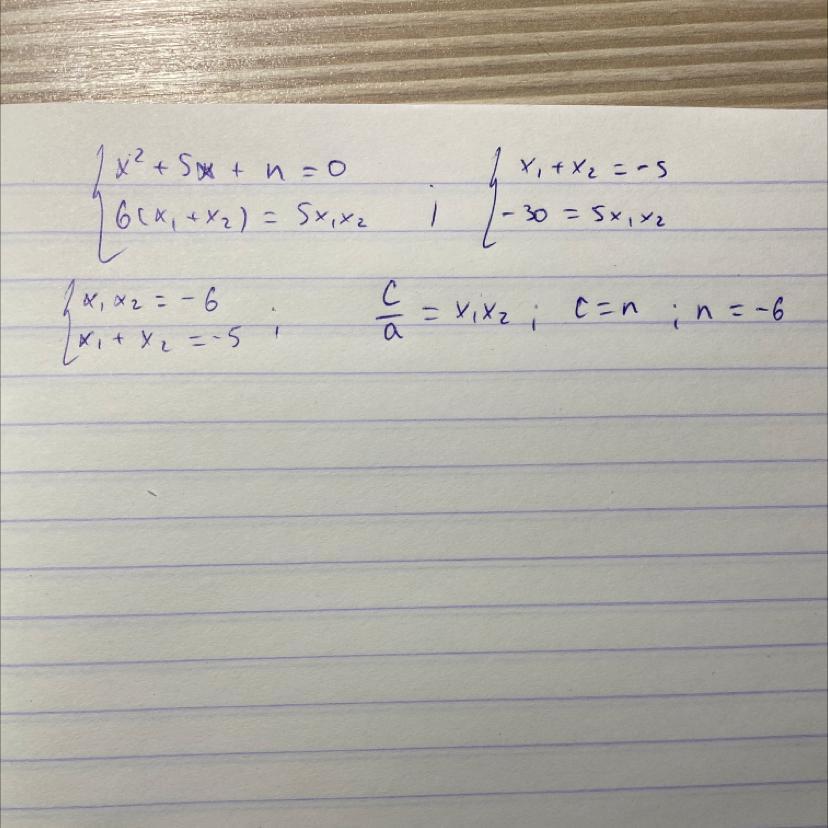 x² + 5x + n = 0
6(x₁ + x₂) = 5x₁x₂ ;
x₁ + x₂ = -5
-30 = 5x₁x₂
x₁x₂ = -6
x₁ + x₂ = -5 ;
c/a = x₁x₂ ; c = n ; n = -6